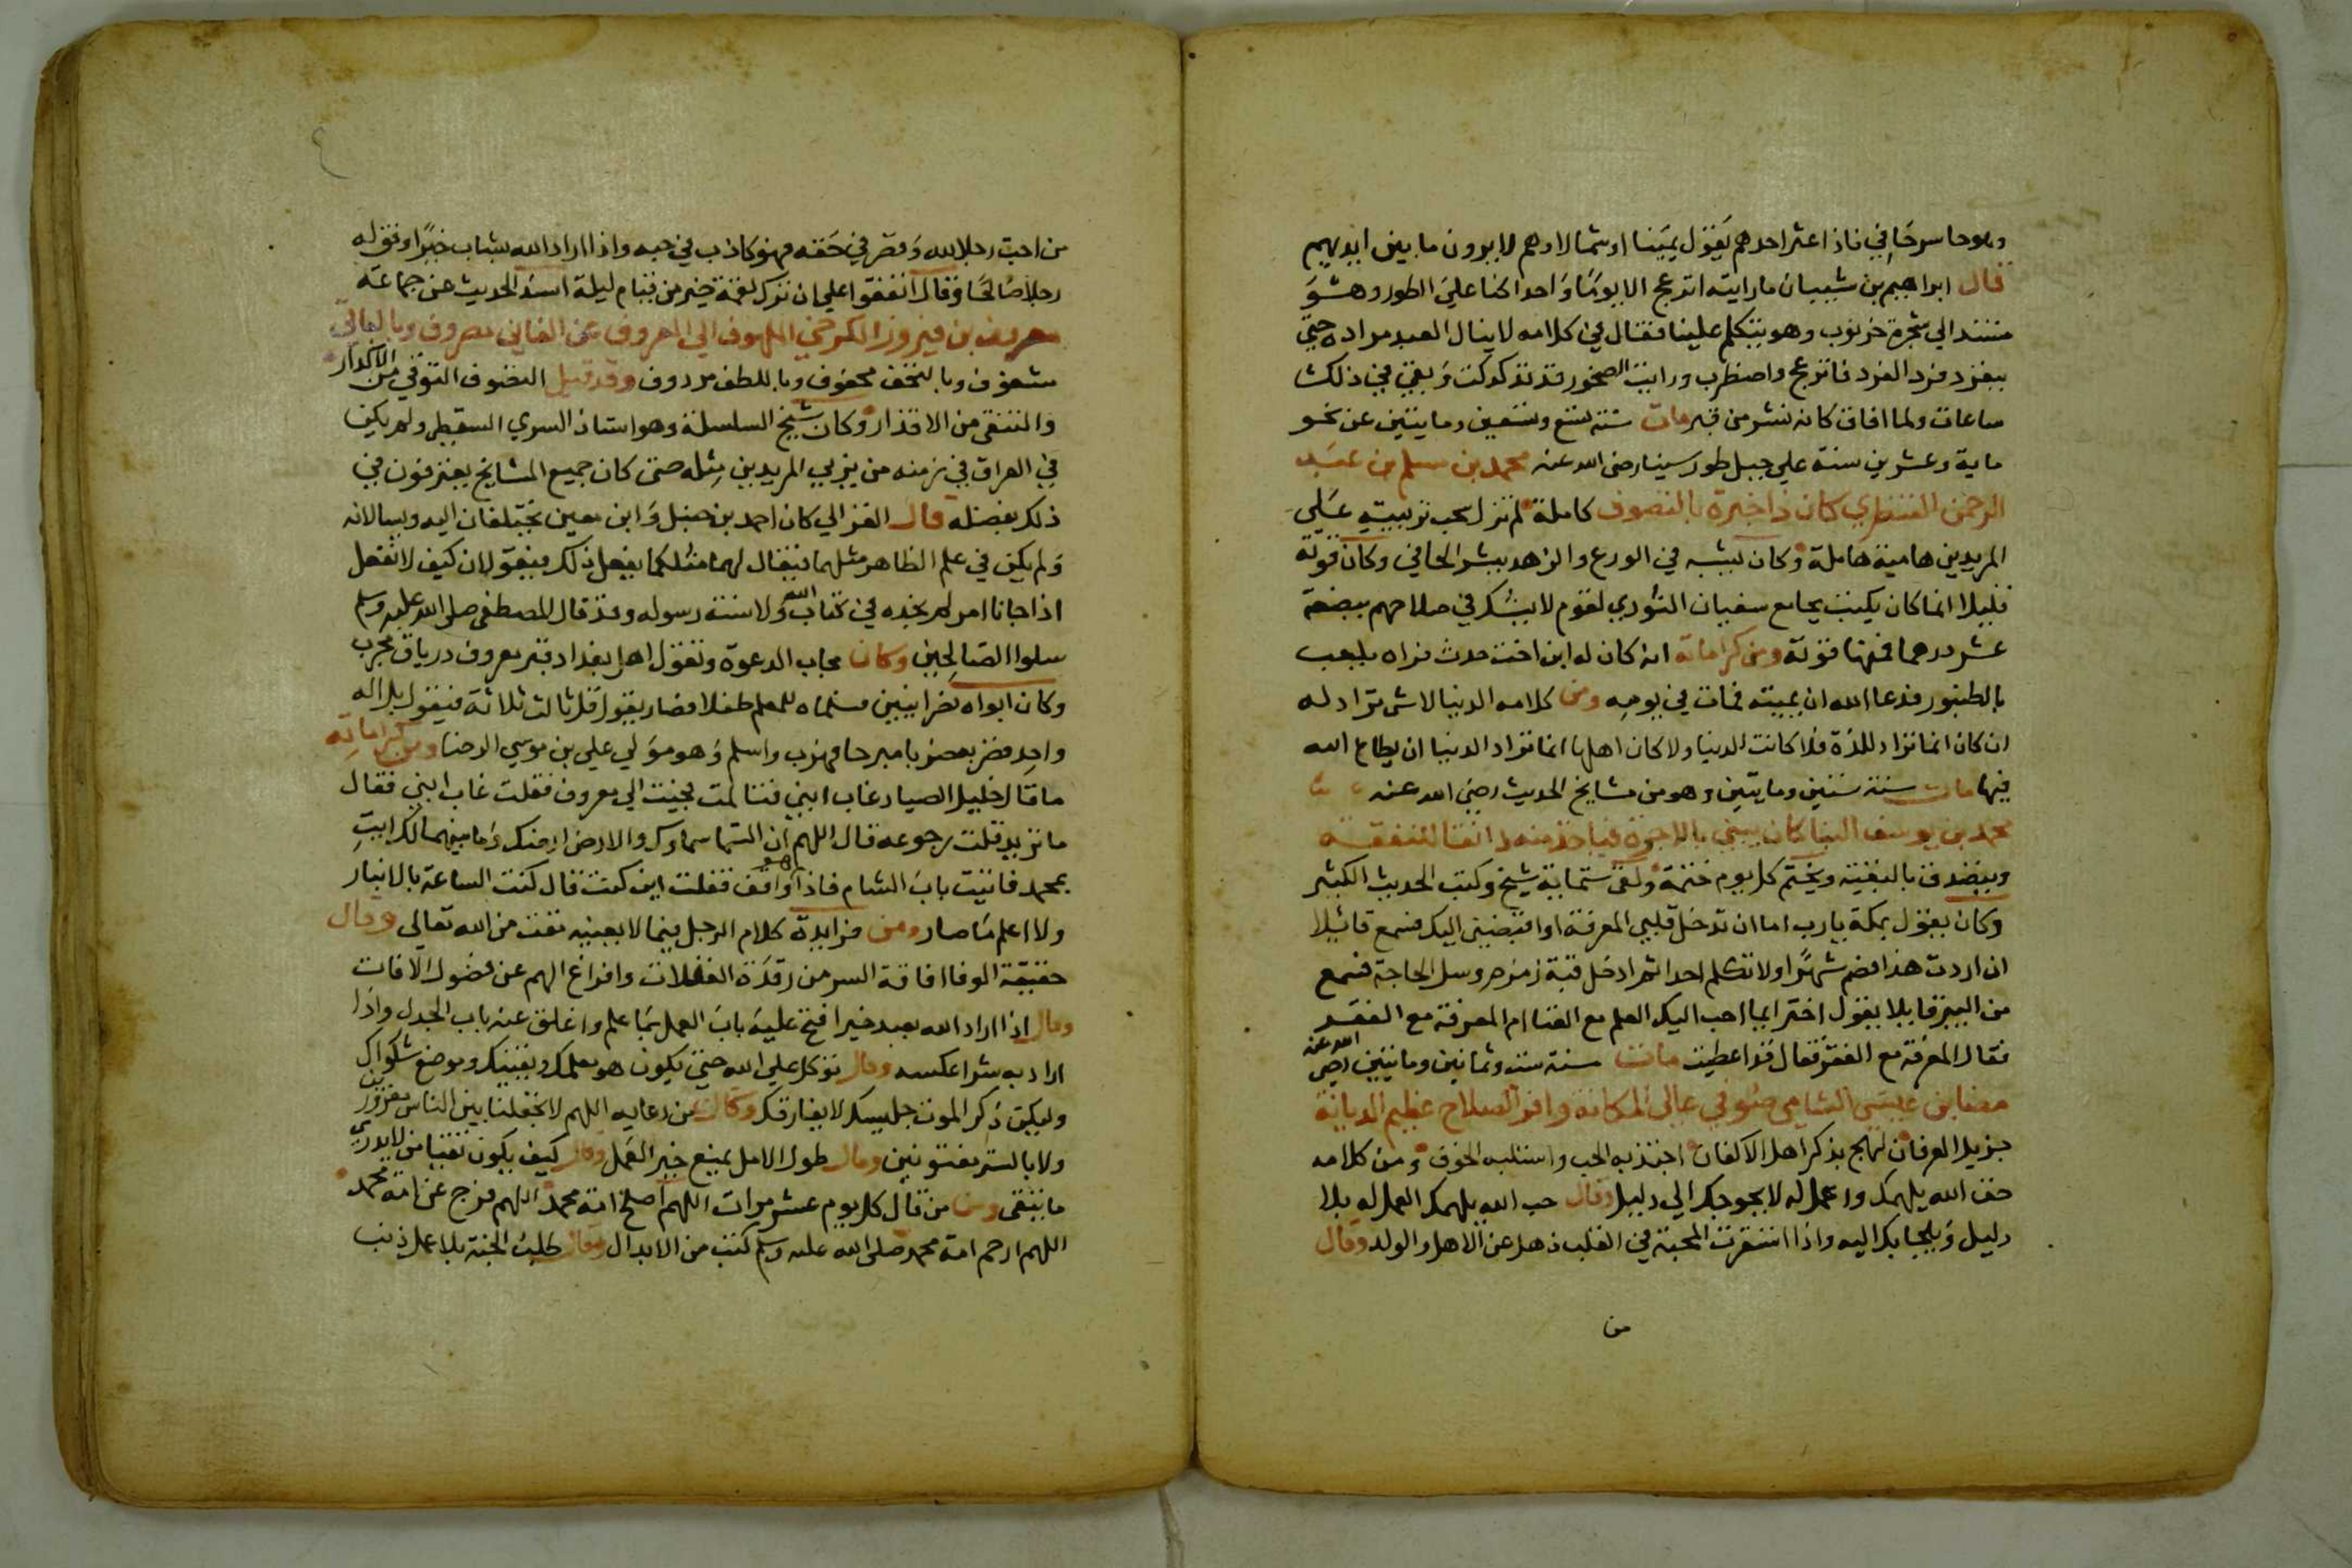 وملوحا سرحا في فاذا عثر احدهم يقول يمينا او شمالا وهم لا يرون ما بين ايديهم
قال ابراهيم بن شيبان ما رايته انزعج الا يوما واحدا كنا علي الطور وهو
مستند الي شجرة خرنوب وهو يتكلم علينا فقال في كلامه لا ينال العبد مراده حتي
ينفرد فردا لفرد فانزعج واضطرب ورايت الصخور قد تدكدكت وبقي في ذلك
ساعات ولما افاق كانه نشر من قبر مات سنة تسع وتسعين ومايتين عن نحو
ماية وعشرين سنة علي جبل طور سينا رضي الله عنه محمد بن مسلم بن عبد
الرحمن القنطري كان ذا خبرة بالتصوف كاملة لم تزل سحب تربيته علي
المريدين هامية هاملة وكان يشبه في الورع والزهد ببشر الحافي وكان قوته
قليلا انما كان يكتب جامع سفيان الثوري لقوم لا يشك في صلاحهم ببضعة
عشر درهما فمنها قوته ومن كراماته انه كان له ابن اخت حدث فراه يلعب
بالطنبور فدعا الله ان يميته فمات في يومه ومن كلامه الدنيا لاش تراد له
ان كان انما تراد للذة فلا كانت الدنيا ولا كان اهلها انما تراد الدنيا ان يطاع الله
فيها مات سنة ستين ومايتين وهو من مشايخ الحديث رضي الله عنه
محمد بن يوسف البنا كان يبني بالاجرة فياخذ منه دانقا لنفقته
ويتصدق بالبقية ويختم كل يوم ختمة ولقي ستماية شيخ وكتب الحديث الكثير
وكان يقول بمكة يارب اما ان تدخل قلبي المعرفة او اقبضني اليك فسمع قائلا
ان اردت هذا فصم شهرا ولا تكلم احدا ثم ادخل قبة زمزم وسل الحاجة فسمع
من البير قايلا يقول اختر ايما احب اليك العلم مع الغنا ام المعرفة مع الفقر
فقال المعرفة مع الفقر فقال قد اعطيت مات سنة ست وثمانين ومايتين رضي الله عنه
مضا بن عيسي الشامي صوفي عالي المكانة وافر الصلاح عظيم الديانة
جزيل العرفان لهج بذكر اهل الاكفان اجتذبه الحب واستلبه الخوف ومن كلامه
خف الله يلهمك واعمل له لا يحوجك الي دليل وقال حب الله يلهمك العمل له بلا
دليل ويلجا بك اليه واذا استقرت المحبة في القلب ذهل عن الاهل والولد وقال
من
من احب رجلا لله وقصر في حقه فهو كاذب في حبه واذا اراد الله بشاب خيرا وفق له
رجلا صالحا وقال اتفقوا علي ان ترك لقمة خير من قيام ليلة اسند الحديث عن جماعة
معروف بن فيروز الكرخي الملهوف الي المعروف عن الفاني مصروف وبالباقي
مشغوف وبالتحف محفوف وباللطف مردوف وقد قيل التصوف التوقي من الاكدار
والتنقي من الاقذار وكان شيخ السلسلة وهو استاذ السري السقطي ولم يكن
في العراق في زمنه من يربي المريدين مثله حتي كان جميع المشايخ يعترفون في
ذلك بفضله قال الغزالي كان احمد بن حنبل وابن معين يختلفان اليه ويسالانه
ولم يكن في علم الظاهر مثلهما فيقال لهما مثلكما يفعل ذلك فيقولان كيف لا نفعل
اذا جانا امر لم نجده في كتاب الله ولا سنة رسوله وقد قال المصطفي صلي الله عليه وسلم
سلوا الصالحين وكان مجاب الدعوة وتقول اهل بغداد قبر معروف درياق مجرب
وكان ابواه نصرانيين فسلماه للمعلم طفلا فصار يقول قل ثالث ثلاثة فيقول بل اله
واحد فضربه ضربا مبرحا فهرب واسلم وهو مولي علي بن موسي الرضا ومن كراماته
ما قال خليل الصياد غاب ابني فتالمت فجيت الي معروف فقلت غاب ابني فقال
ما تريد قلت رجوعه قال اللهم ان السما سماوك والارض ارضك وما بينهما لك ايت
بمحمد فاتيت باب الشام فاذا هو واقف فقلت اين كنت قال كنت الساعة بالانبار
ولا اعلم ما صار ومن فرايده كلام الرجل فيما لا يعنيه مقت من الله تعالي وقال
حقيقة الوفا افاقة السر من رقدة الغفلات وافراغ الهم عن فضول الافات
وقال اذا اراد الله بعبد خيرا فتح عليه باب العمل بما علم واغلق عنه باب الجدل واذا
اراد به شرا عكسه وقال توكل علي الله حتي يكون هو معلمك ويقينك وموضع شكواك
وليكن ذكر الموت جليسك لا يفارقك وكان من دعايه اللهم لا تجعلنا بين الناس مغرورين
ولا بالستر مفتونين وقال طول الامل يمنع خير العمل وقال كيف يكون تقيا من لا يدري
ما يتقي ومن من قال كل يوم عشر مرات اللهم اصلح امة محمد اللهم فرج عن امة محمد
اللهم ارحم امة محمد صلي الله عليه وسلم كتب من الابدال وقال طلب الجنة بلا عمل ذنب